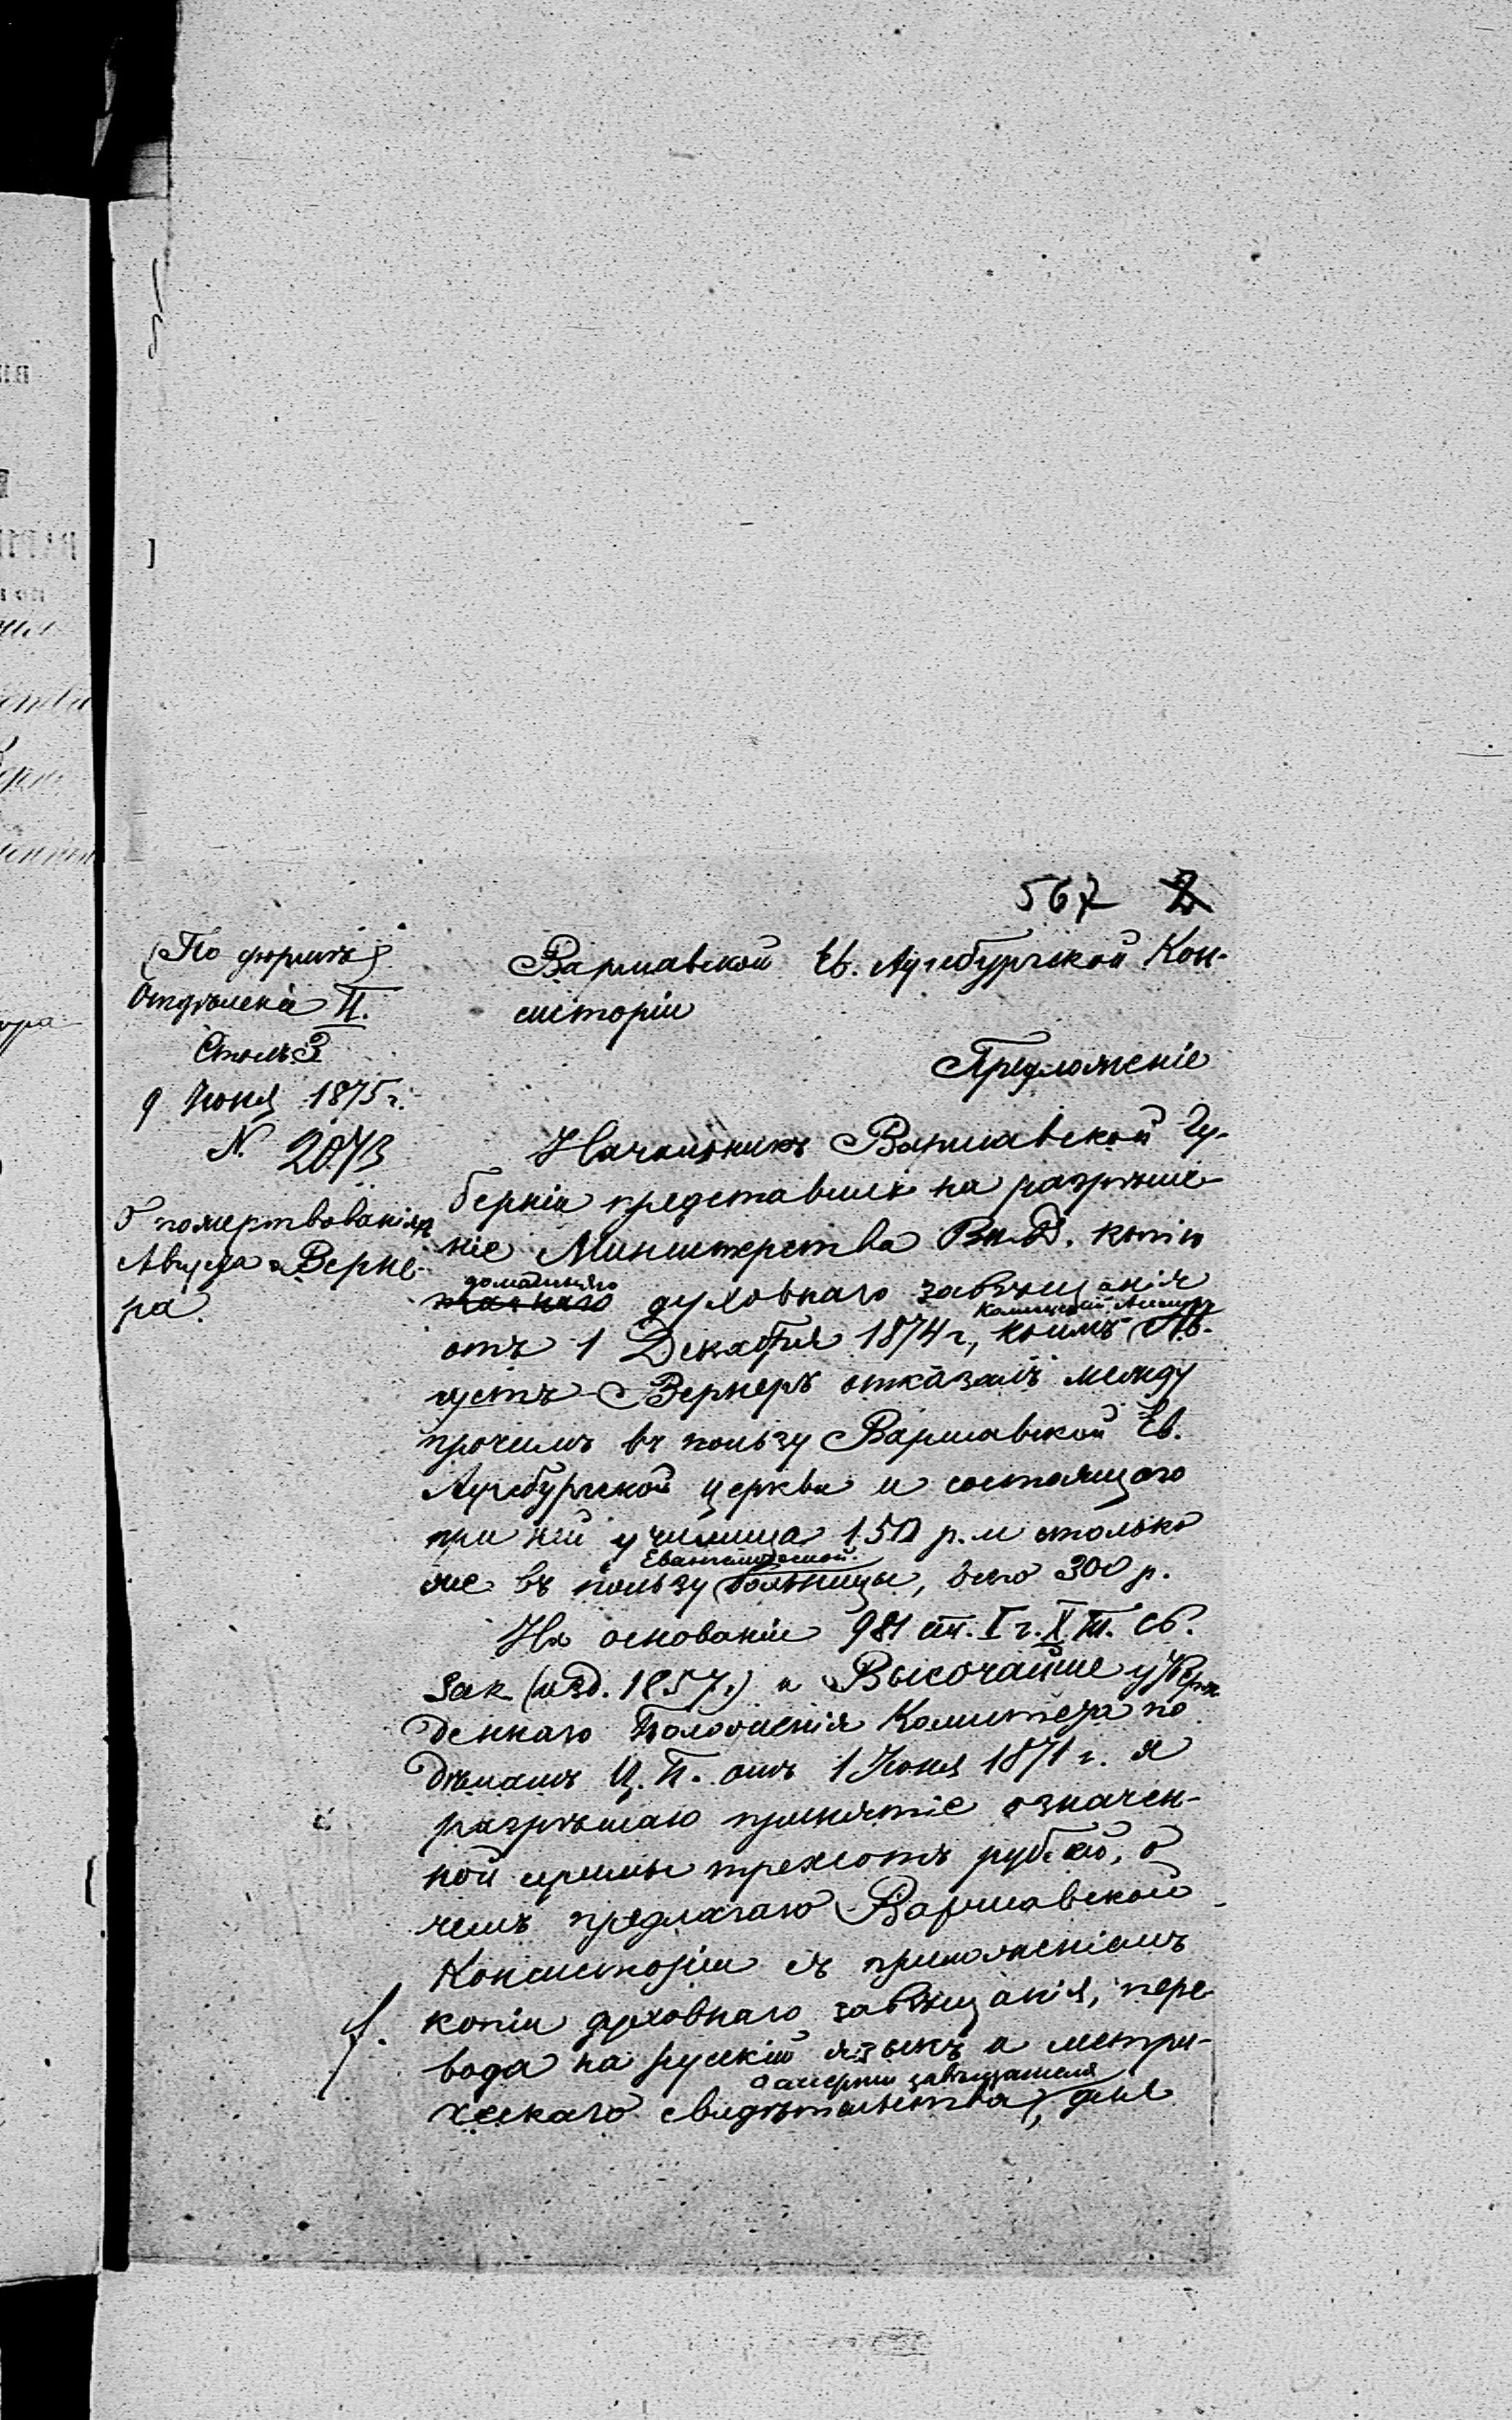 567 2
(По формѣ)
Отдѣленіе II.
Столъ 3
9 Іюня 1875 г.
N. 2073
О пожертвованіяхъ
Августа Верне-
ра.
Варшавской Ев. Аугсбургской Кон-
систоріи
Предложеніе
Начальникъ Варшавской Гу-
берніи представилъ на разрѣше-
ніе Министерства Вн. Д. копію
домашняго
духовнаго завѣщанія
отъ 1 Декабря 1874 г., коимъ Ав-
густъ Вернеръ отказалъ между
прочимъ въ пользу Варшавской Ев.
Аугсбургской церкви и состоящаго
при ней училища 150 р. и столько
Евангелической
же въ пользу больницы, всего 300 р.
На основаніи 981 ст. I ч. X т. Св.
Зак. (изд. 1857 г.) и Высочайше утверж-
деннаго Положенія Комитета по
дѣламъ Ц. П. отъ 1 Іюня 1871 г. я
разрѣшаю принятіе означен-
ной суммы трехсотъ рублей, о
чемъ предлагаю Варшавской
Консисторіи съ приложеніемъ
копіи духовнаго завѣщанія, пере-
вода на русскій языкъ и метри-
о смерти завѣщателя
ческаго свидѣтельства, для